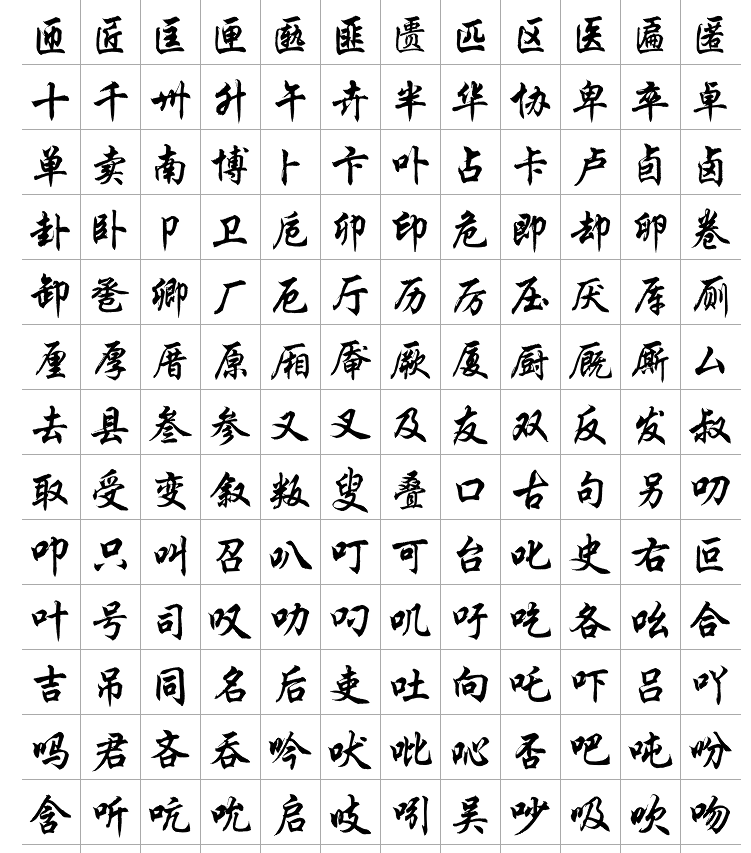 匝匠匡匣匦匪匮匹区医匾匿
十千卅升午卉半华协卑卒卓
单卖南博卜卞卟占卡卢卣卤
卦卧卩卫卮卯印危即却卵卷
卸卺卿厂厄厅历厉压厌厍厕
厘厚厝原厢厣厥厦厨厩厮厶
去县叁参又叉及友双反发叔
取受变叙叛叟叠口古句另叨
叩只叫召叭叮可台叱史右叵
叶号司叹叻叼叽吁吃各吆合
吉吊同名后吏吐向吒吓吕吖
吗君吝吞吟吠吡吣否吧吨吩
含听吭吮启吱吲吴吵吸吹吻